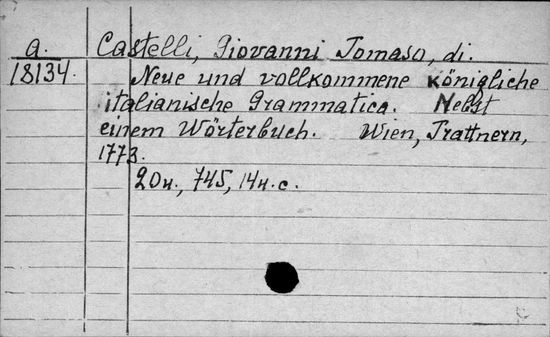 a.
18134.
Castelli, Giovanni Tomaso, di.
Neue und vollkommene königliche
italianische Grammatica. Nebst
einem Wörterbuch. Wien, Trattnern,
1773.
20u., 745, 14u.c.